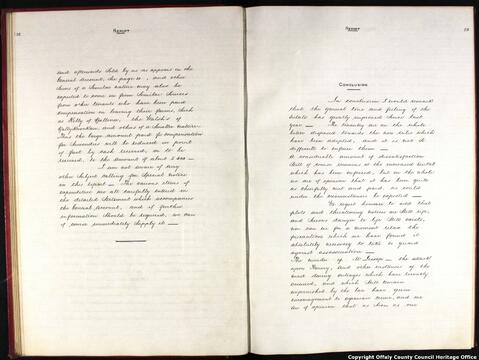 REPORT
and afterwards sold by us as appears in the
Rental Account, see page 10, and other
items of a similar nature may also be
expected to come in from similar sources
from other tenants who have been paid
compensation on leaving their farms, such
as Kelly of Galbros, the Walsh's of
and others of a similar nature.
Thus the large amount paid for compensation
for improvements will be reduced in point
of fact by cash received, or to be
received, to the amount of about £
I am not aware of any
other subject calling for special notice
in this report — The various items of
expenditure are all carefully entered in
the detailed statement which accompanies
the Rental Account, and if further
information should be required, we can
of course immediately supply it —
REPORT
CONCLUSION
In conclusion I would remark
that the general tone and feeling of the
estate has greatly improved since last
year — The tenantry are on the whole
better disposed towards the new rules which
have been adopted, and it is not so
difficult to enforce them —
A considerable amount of dissatisfaction
still of course remains at the increased rental
which has been imposed, but on the whole
we are of opinion that it has been quite
as cheerfully met and paid, as could
under the circumstances be expected —
We regret however to add that
plots and threatening notices are still rife,
and serious danger to life still exists,
nor can we for a moment relax the
precautions which we have found it
absolutely necessary to take to guard
against assassination —
The murder of Mr Jessop — the attack
upon Kenny, and other instances of the
most daring outrages which have recently
occurred, and which still remain
unpunished by the law have given
encouragement to agrarian crime, and we
are of opinion that as soon as our
Copyright Offaly County Council Heritage Office